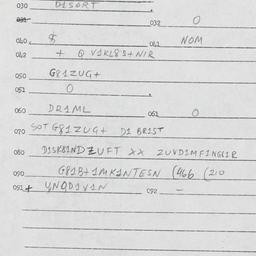 030 D1SORT
031 032 O
040 $ 041 NOM
042 + Q V1KL8S+N1R
050 G81ZUG+
051 O
060 DR1ML 061 O
070 SOT G81ZUG+ D1 BR1ST
080 D1SK81NDZUFT XX ZUVD1MF1NGG1R
090 G81B+1MK1NTESN (466 (210
091 + YNQD1V1N 092 -